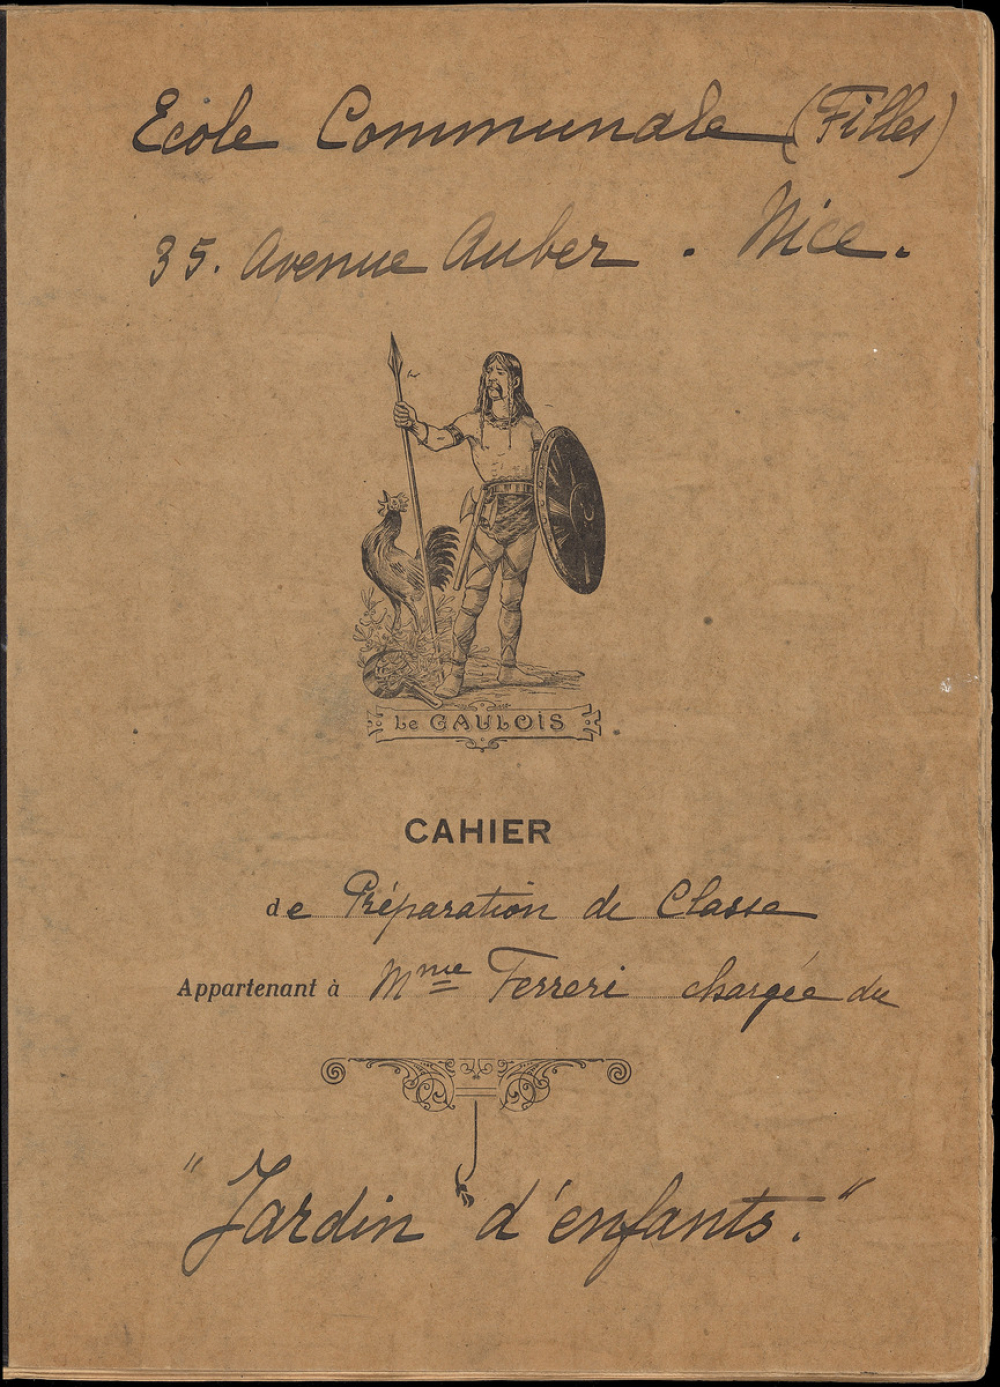 Ecole Communale (Filles)
35. Avenue Auber. Nice.
Le GAULOIS
CAHIER
de Préparation de Classe
Appartenant à Mme Ferreri chargée du
"Jardin d'enfants."